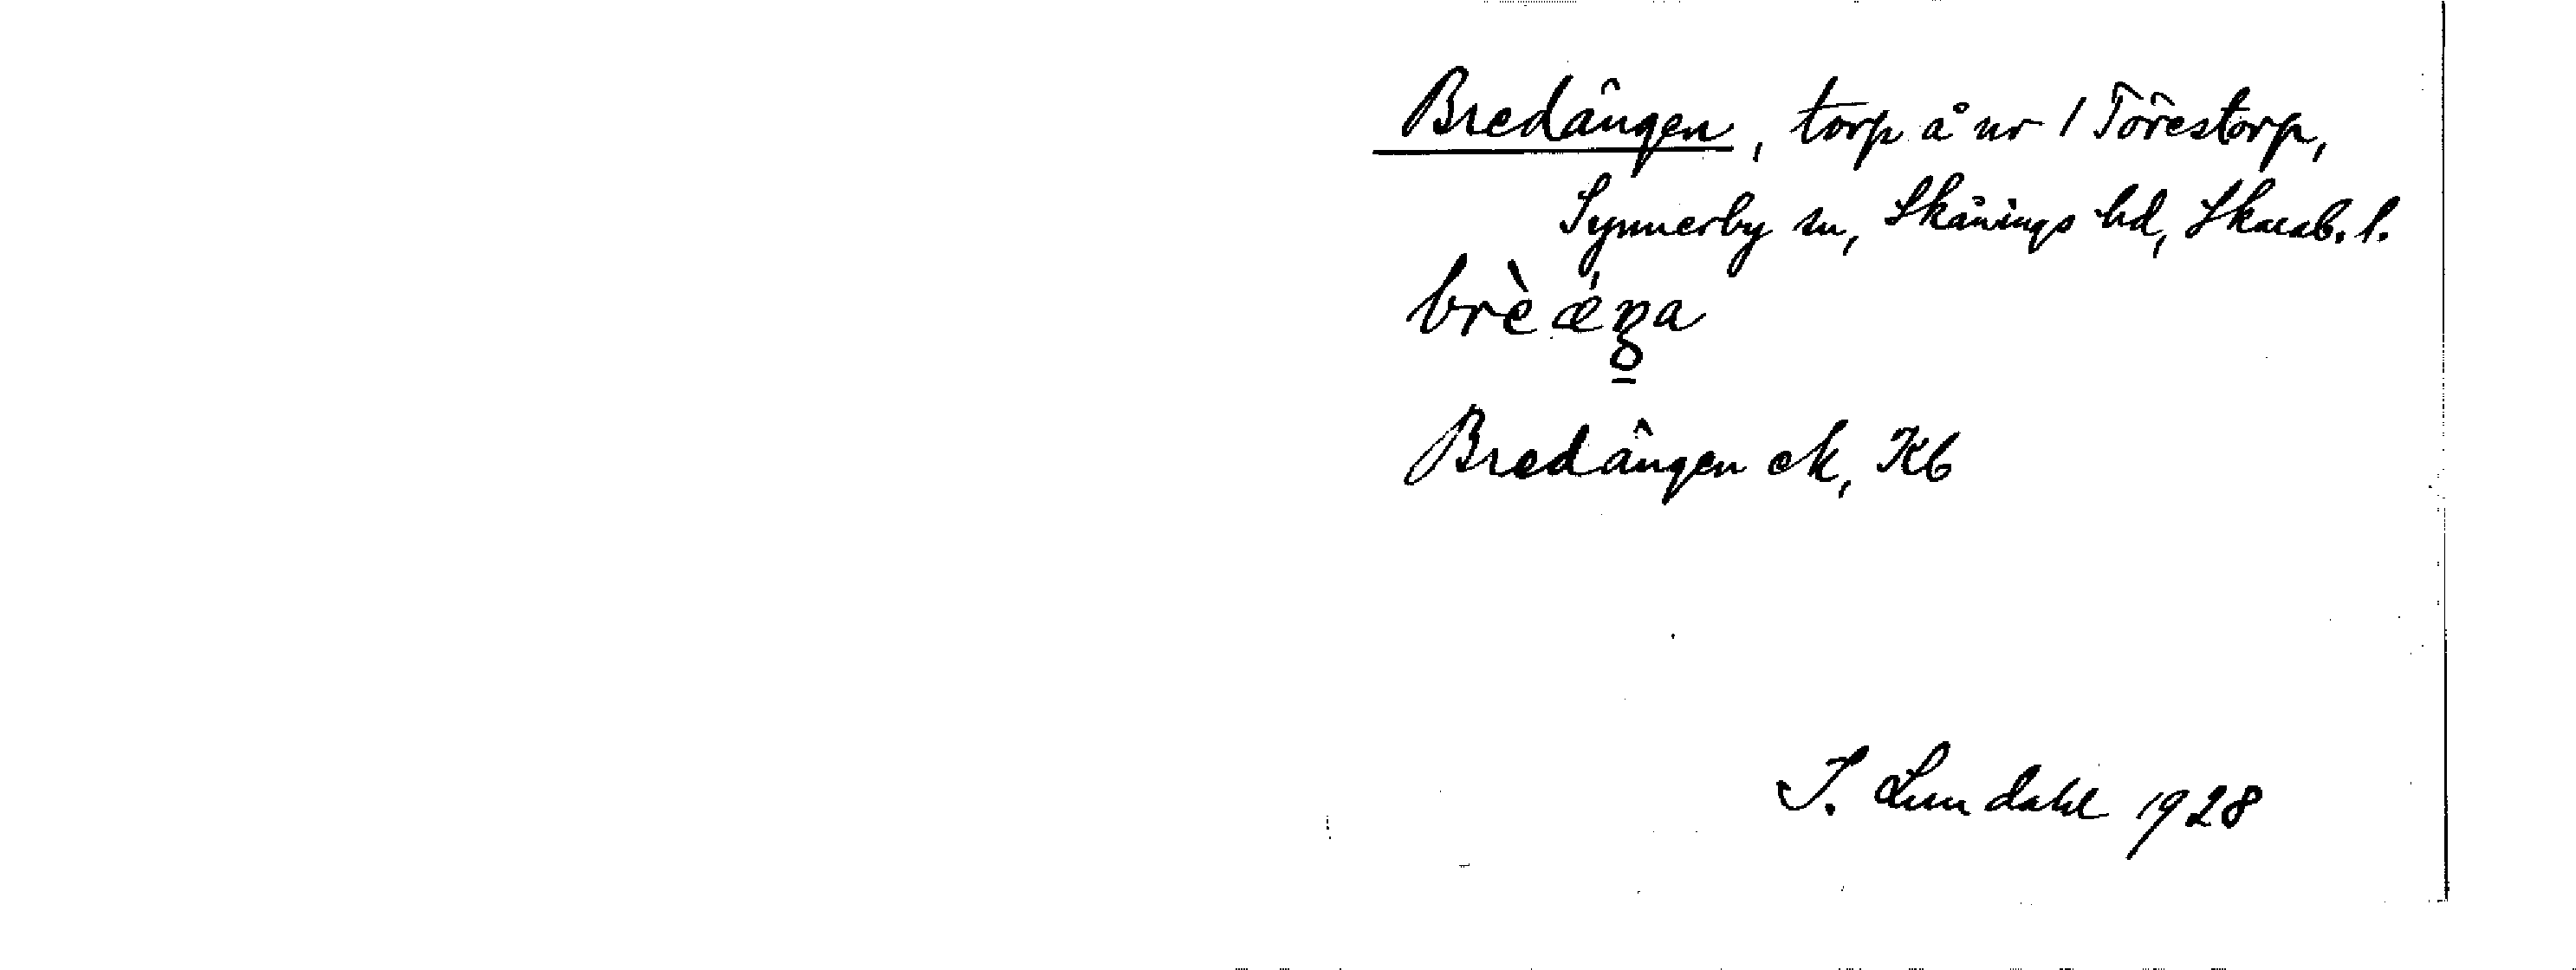 Bredängen, torp å nr 1 Törestorp,
Synnerby sn, Skånings hd, Skarab. l.
brèǽŋa
Bredängen ek, Kb
I. Lundahl 1928